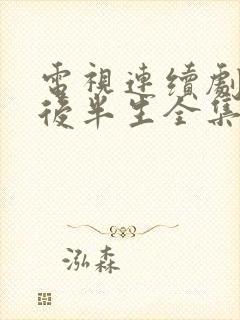 電視連續劇
後半生全集
泓森